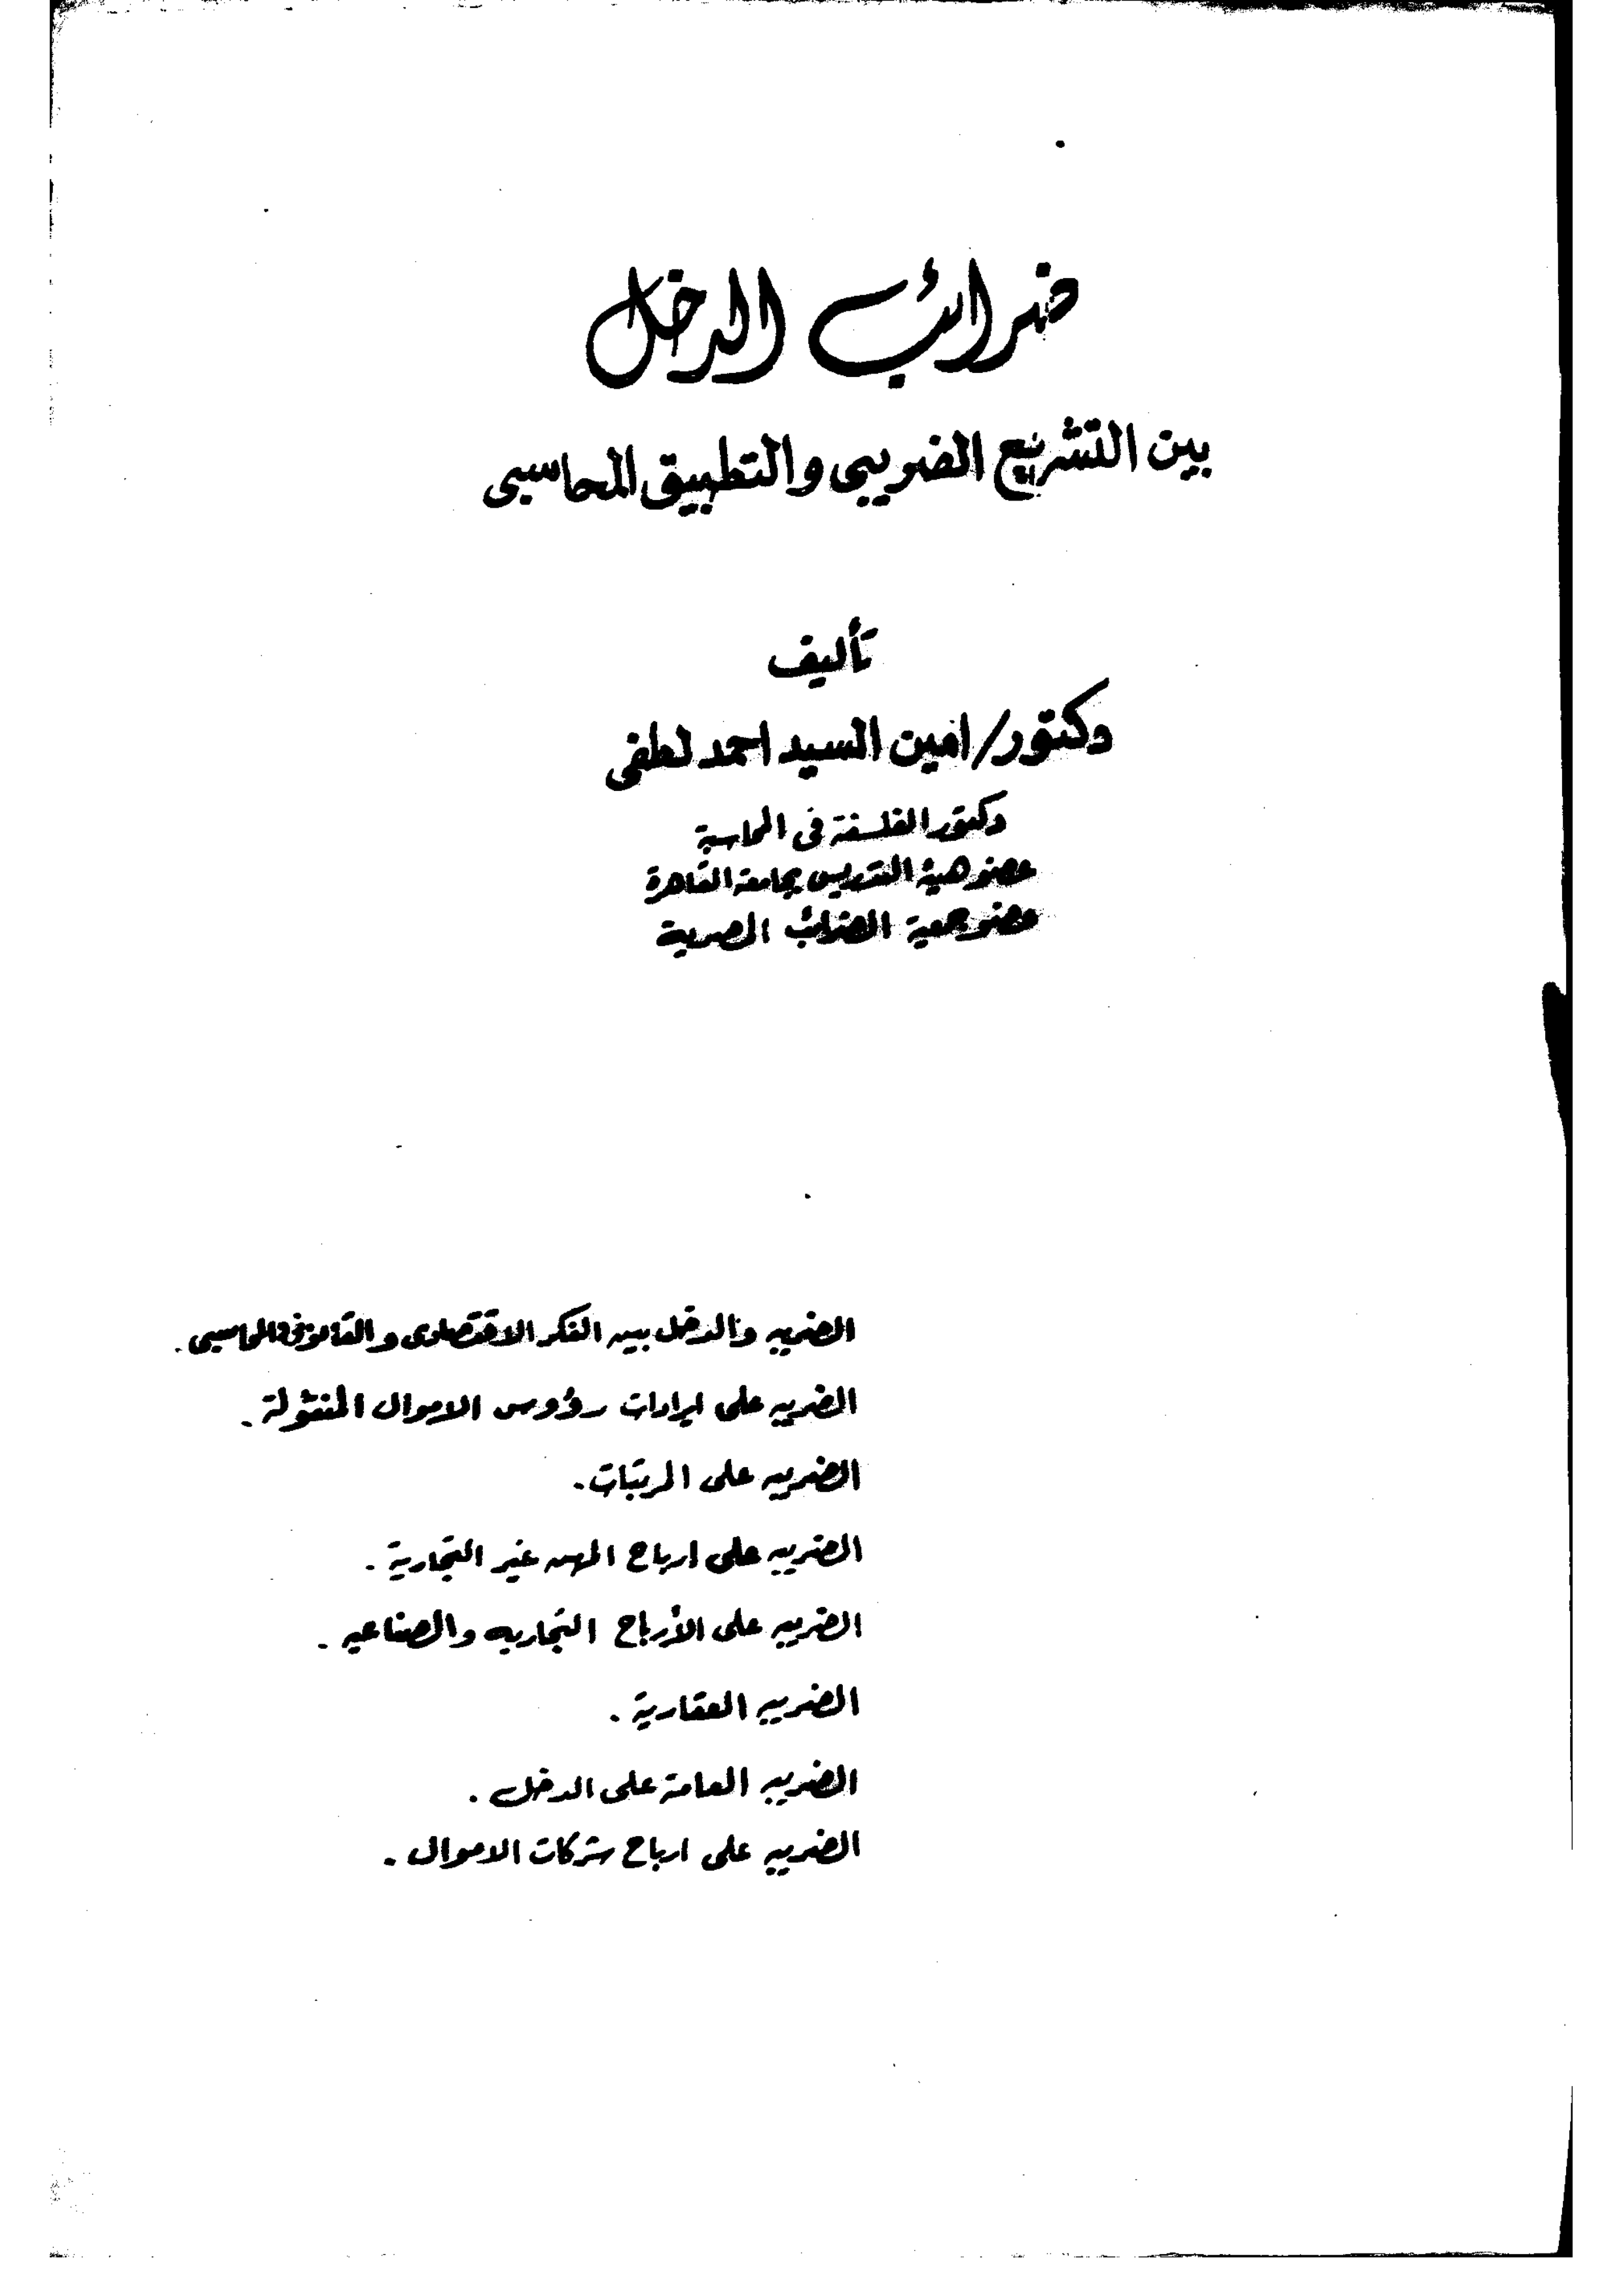 ضرائب الدخل
بين التشريع الضريبى والتطبيق المحاسبى
تأليف
دكتور/امين السيد احمد لطفى
دكتور الفلسفة فى المحاسبة
عضو هيئة التدريس بجامعة القاهرة
عضو جمعية الضرائب المصرية
الضريبه والدخل بين الفكر الاقتصادى والقانونى والمحاسبى .
الضريبه على ايرادات رؤوس الاموال المنقولة .
الضريبه على المرتبات .
الضريبه على ارباح المهن غير التجارية .
الضريبه على الأرباح التجاريه والصناعيه .
الضريبه العقارية .
الضريبه العامة على الدخل .
الضريبه على ارباح شركات الاموال .